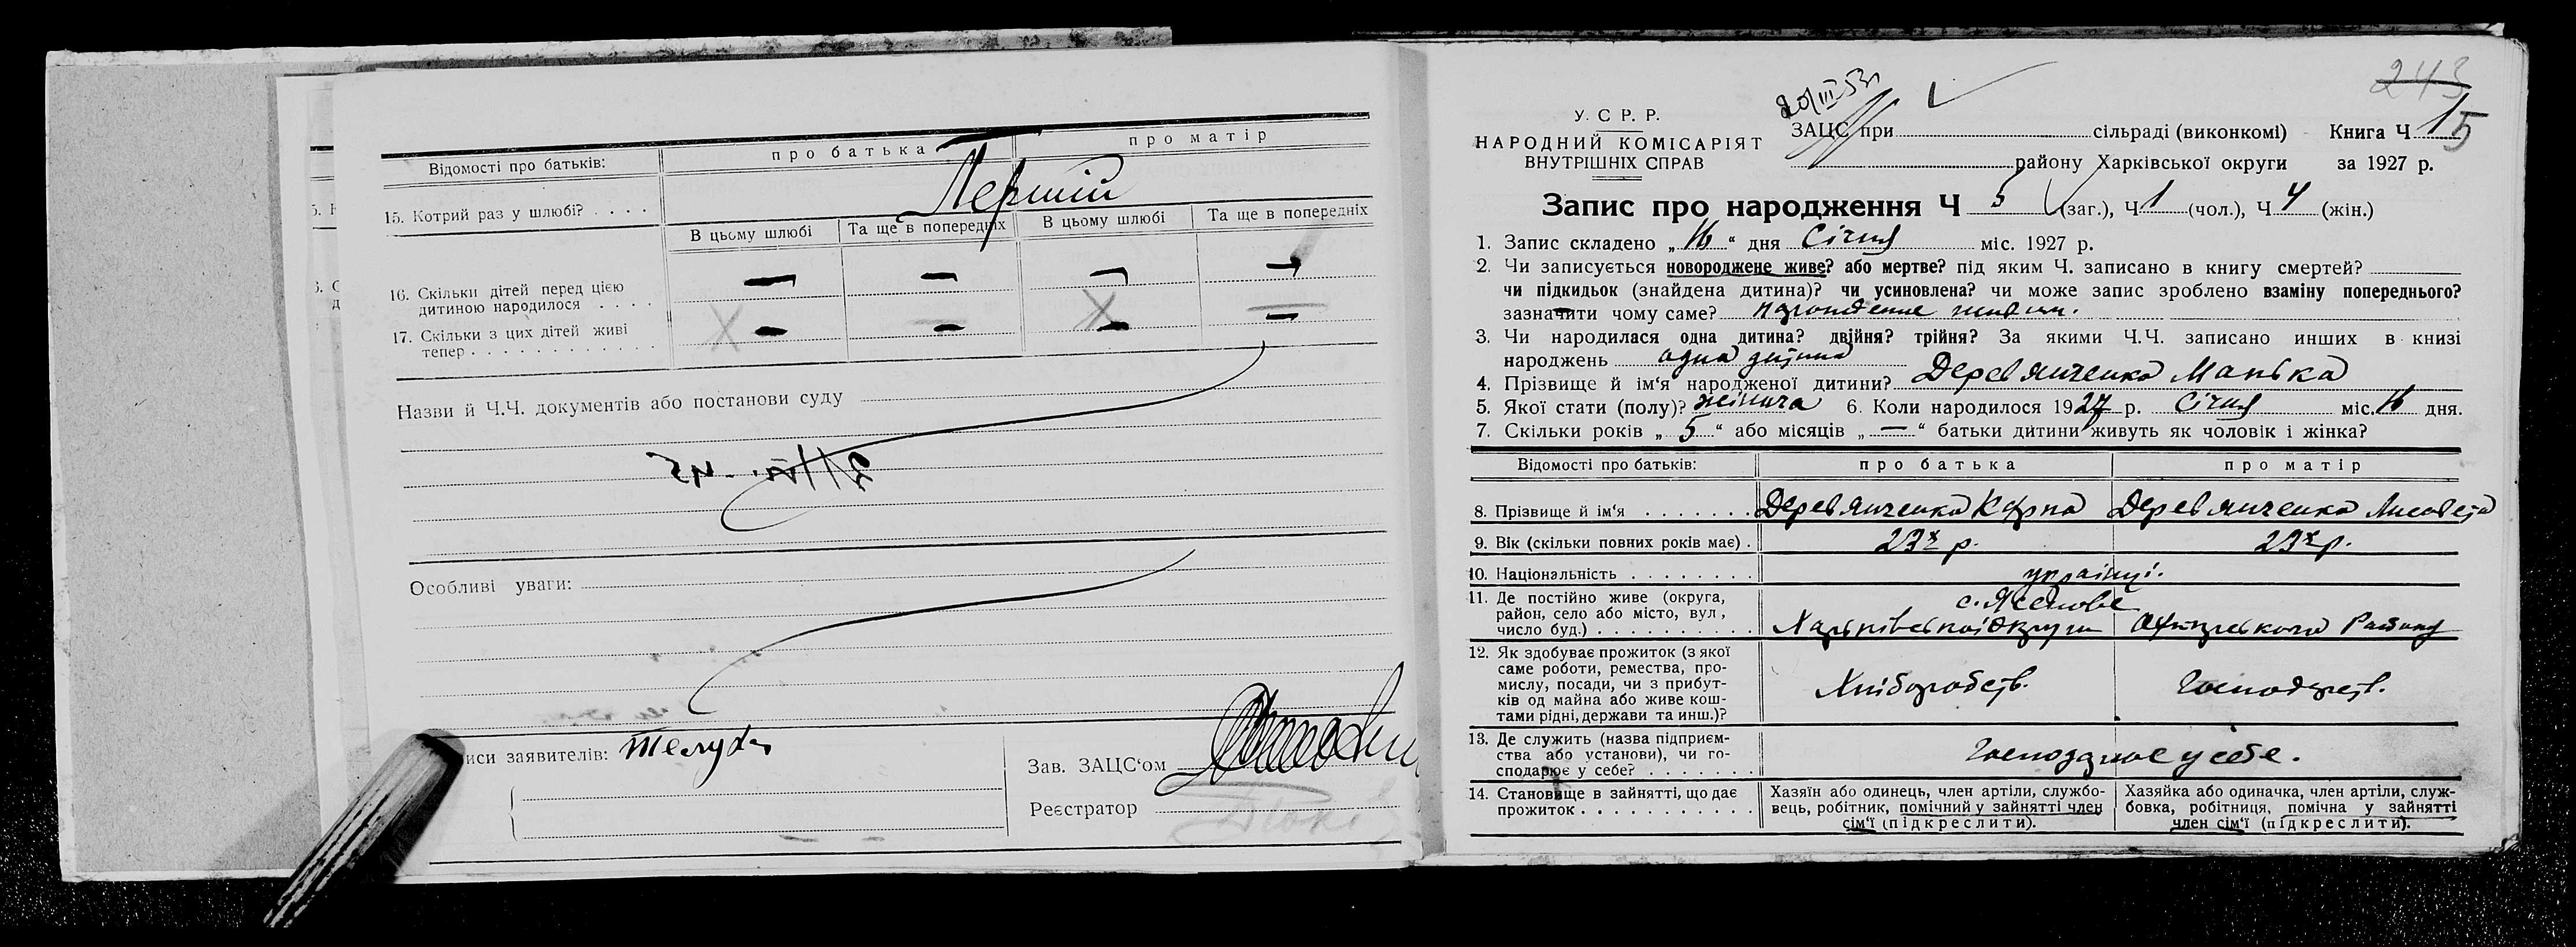 Відомості про батьків: про батька про матір
15. Котрий раз у шлюбі? . . . . Перший
В цьому шлюбі Та ще в попередніх В цьому шлюбі Та ще в попередніх
16. Скільки дітей перед цією
дитиною народилося . . . . — — — —
17. Скільки з цих дітей живі
тепер . . . . . . . . . . . . . — — — —
Назви й Ч.Ч. документів або постанови суду
Особливі уваги:
иси заявителів:
Зав. ЗАЦС‘ом
Реєстратор
243
20/III 53
У. С Р. Р.
НАРОДНИЙ КОМІСАРІЯТ
ВНУТРІШНІХ СПРАВ
ЗАЦС при сільраді (виконкомі) Книга Ч 1 5
району Харківської округи за 1927 р.
Запис про народження Ч 5 (заг.), Ч 1 (чол.), Ч 4 (жін.)
1. Запис складено „ 16 “ дня Січня міс. 1927 р.
2. Чи записується новороджене живе? або мертве? під яким Ч. записано в книгу смертей?
чи підкидьок (знайдена дитина)? чи усиновлена? чи може запис зроблено взаміну попереднього?
зазначити чому саме?
3. Чи народилася одна дитина? двійня? трійня? За якими Ч.Ч. записано инших в книзі
народжень одна дитина
4. Прізвище й ім‘я народженої дитини? Деревянченко Манька
5. Якої стати (полу)? жіноча 6. Коли народилося 1927 р. Січня міс. 16 дня.
7. Скільки років „ 5 “ або місяців „ — “ батьки дитини живуть як чоловік і жінка?
Відомості про батьків: про батька про матір
8. Прізвище й ім‘я . . . . . . . Деревянченко Карпо Деревянченко Лисавета
9. Вік (скільки повних років має) . 23х р. 23х р.
10. Національність . . . . . . . . українці.
11. Де постійно живе (округа,
район, село або місто, вул,
число буд.) . . . . . . . . . . .
Харьківської Округи Району
12. Як здобуває прожиток (з якої
саме роботи, ремества, про-
мислу, посади, чи з прибут-
ків од майна або живе кош-
тами рідні, держави та инш.)?
Хліборобств. Господарств.
13. Де служить (назва підприєм-
ства або установи), чи го-
сподарює у себе? . . . . . . .
Господарює у себе.
14. Становище в зайнятті, що дає
прожиток . . . . . . . . . . .
Хазяїн або одинець, член артіли, службо-
вець, робітник, помічний у зайнятті член
сім‘ї (підкреслити).
Хазяйка або одиначка, член артіли, служ-
бовка, робітниця, помічна у зайнятті
член сім‘ї (підкреслити).